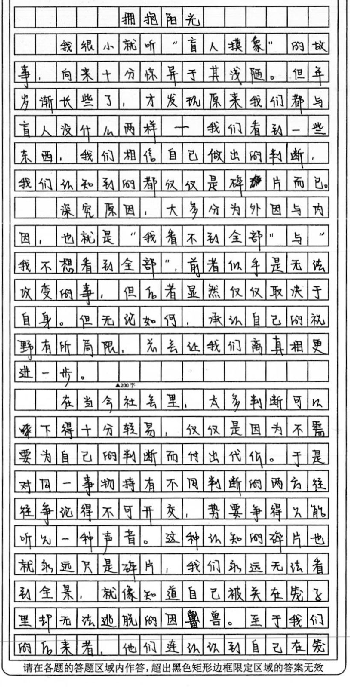 拥抱阳光
我很小就听“盲人摸象”的故
事，向来十分惊异于其浅陋。但年
岁渐长些了，才发现原来我们都与
盲人没什么两样——我们看到一些
东西，我们相信自己做出的判断，
我们认知到的都仅仅是碎片而已。
深究原因，大多分为外因与内
因，也就是“我看不到全部”与“
我不想看到全部”，前者似乎是无法
改变的事，但后者显然仅仅取决于
自身。但无论如何，承认自己的视
野有所局限，总会让我们离真相更
进一步。
▲200字
在当今社会里，太多判断可以
下得十分轻易，仅仅是因为不需
要为自己的判断而付出代价。于是
对同一事物持有不同判断的两会往
往争论得不可开交，势要争得只能
听见一种声音。这种认知的碎片也
就永远只是碎片，我们永远无法看
到全景，就像知道自己被关在笼子
里却无法逃脱的困兽。至于我们
的后来者，他们连认识到自己在笼
请在各题的答题区域内作答，超出黑色矩形边框限定区域的答案无效